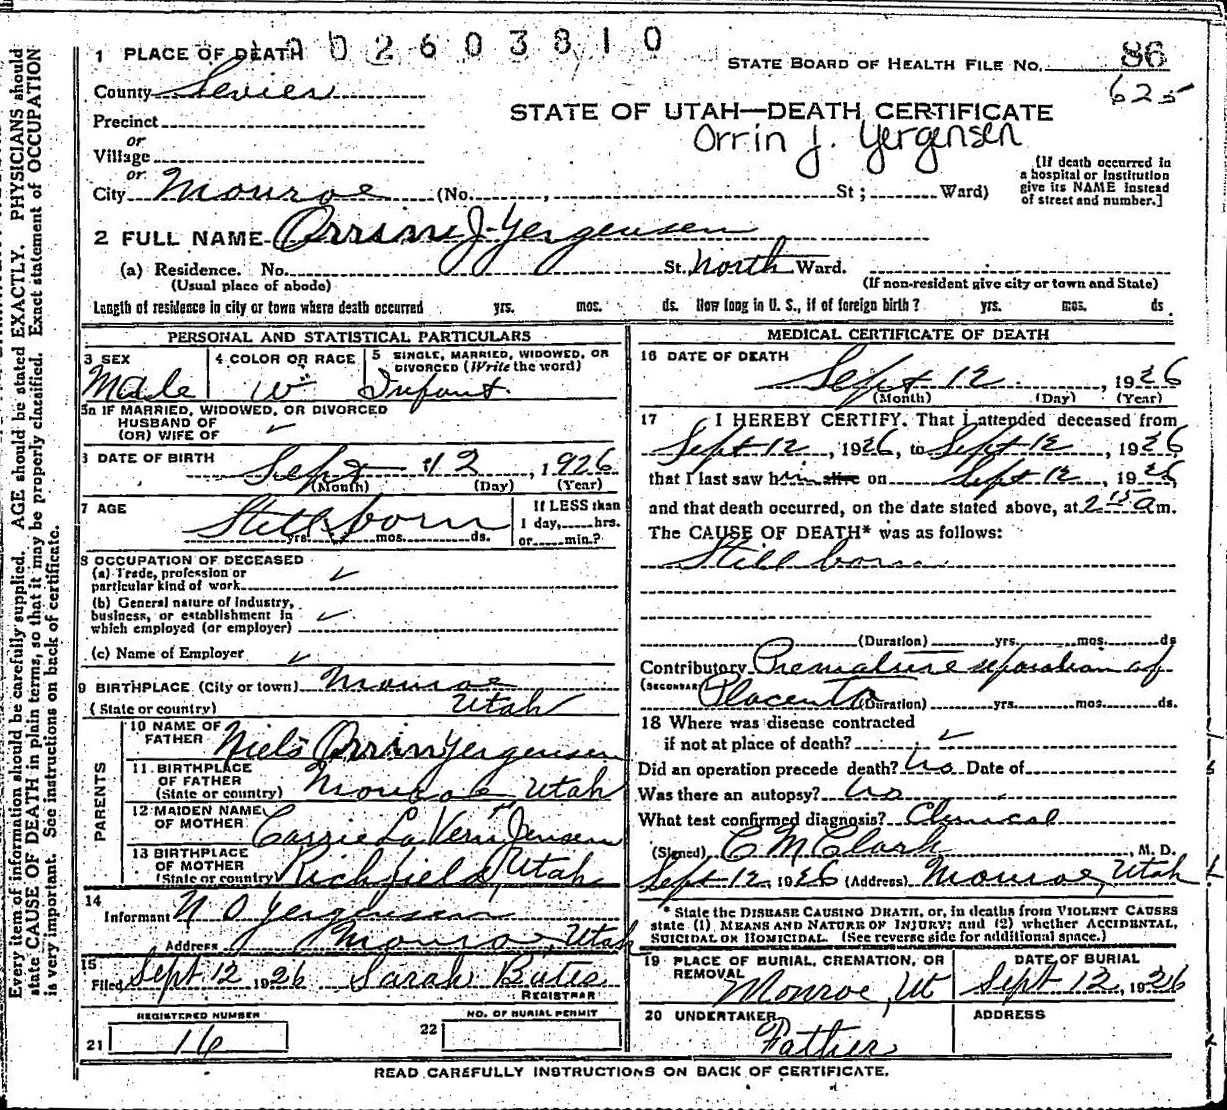 1 PLACE OF DEATH 0 2 6 0 3 8 1 0
STATE BOARD OF HEALTH FILE NO. 86
County Sevier 625
STATE OF UTAH—DEATH CERTIFICATE
Precinct
or
Village
or
Orrin J. Yergensen
(If death occurred in
a hospital or institution
give its NAME instead
of street and number.]
City Monroe (No. , St; Ward)
2 FULL NAME Orrin J. Yergensen
(a) Residence. No. St. North Ward.
(Usual place of abode) (If non-resident give city or town and State)
Length of residence in city or town where death occurred yrs. mos. ds. How long in U. S., if of foreign birth? yrs. mos. ds
PERSONAL AND STATISTICAL PARTICULARS
3 SEX
Male
4 COLOR OR RACE
W
5 SINGLE, MARRIED, WIDOWED, OR
DIVORCED (Write the word)
Infant
5a IF MARRIED, WIDOWED, OR DIVORCED
HUSBAND OF
(OR) WIFE OF
DATE OF BIRTH Sept 12, 1926
(Month) (Day) (Year)
7 AGE
Still born
yrs. mos. ds.
If LESS than
1 day, hrs.
or min.?
8 OCCUPATION OF DECEASED
(a) Trade, profession or
particular kind of work
(b) General nature of industry,
business, or establishment in
which employed (or employer)
(c) Name of Employer
9 BIRTHPLACE (City or town) Monroe
(State or country) Utah
PARENTS
10 NAME OF
FATHER Niels Orrin Yergensen
11 BIRTHPLACE
OF FATHER
(State or country) Monroe Utah
12 MAIDEN NAME
OF MOTHER Carrie La Vern Jensen
13 BIRTHPLACE
OF MOTHER
(State or country) Richfield, Utah
14
Informant N O Yergensen
Address Monroe, Utah
15
Filed Sept 12 1926 Sarah Bates
REGISTRAR
REGISTERED NUMBER
21 16
NO. OF BURIAL PERMIT
22
MEDICAL CERTIFICATE OF DEATH
16 DATE OF DEATH
Sept 12, 1926
(Month) (Day) (Year)
17 I HEREBY CERTIFY. That I attended deceased from
Sept 12, 1926, to Sept 12, 1926
that I last saw him alive on Sept 12, 1926,
and that death occurred, on the date stated above, at 2 15 a m.
The CAUSE OF DEATH* was as follows:
Still born
(Duration) yrs. mos. ds
Contributory Premature separation of
(SECONDARY) Placenta (Duration) yrs. mos. ds.
18 Where was disease contracted
if not at place of death?
Did an operation precede death? No Date of
Was there an autopsy? No
What test confirmed diagnosis? Clinical
(Signed) C M Clark, M. D.
Sept 12 1926 (Address) Monroe, Utah
* State the DISEASE CAUSING DEATH, or, in deaths from VIOLENT CAUSES
state (1) MEANS AND NATURE OF INJURY; and (2) whether ACCIDENTAL,
SUICIDAL OR HOMICIDAL. (See reverse side for additional space.)
19 PLACE OF BURIAL, CREMATION, OR
REMOVAL
Monroe, Ut
DATE OF BURIAL
Sept 12, 1926
20 UNDERTAKER
Father
ADDRESS
READ CAREFULLY INSTRUCTIONS ON BACK OF CERTIFICATE.
Every item of information should be carefully supplied. AGE should be stated EXACTLY. PHYSICIANS should
state CAUSE OF DEATH in plain terms, so that it may be properly classified. Exact statement of OCCUPATION
is very important. See instructions on back of certificate.